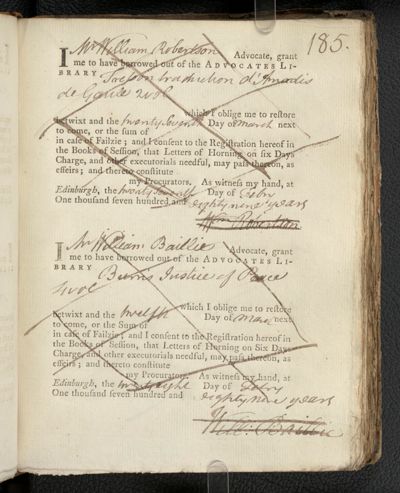 185.
I Mr William Robertson Advocate, grant
me to have borrowed out of the ADVOCATES LI-
BRARY Tressan traduction d'Amadis
de Gaule 2 vol
which I oblige me to restore
betwixt and the twenty seventh Day of March next
to come, or the sum of
in case of Failzie; and I consent to the Registration hereof in
the Books of Session, that Letters of Horning on six Days
Charge, and other executorials needful, may pass thereon, as
effeirs; and thereto constitute
my Procurators. As witness my hand, at
Edinburgh, the twenty seventh Day of Febry
One thousand seven hundred and eighty nine years
Wm Robertson
I Mr William Baillie Advocate, grant
me to have borrowed out of the ADVOCATES LI-
BRARY Burns Justice of Peace
4 vol
which I oblige me to restore
betwixt and the twelfth Day of Mar next
to come, or the Sum of
in case of Failzie; and I consent to the Registration hereof in
the Books of Session, that Letters of Horning on Six Days
Charge, and other executorials needful, may pass thereon, as
effeirs; and thereto constitute
my Procurators. As witness my hand, at
Edinburgh, the twenty eight Day of Febry
One thousand seven hundred and eighty nine years
Will: Baillie